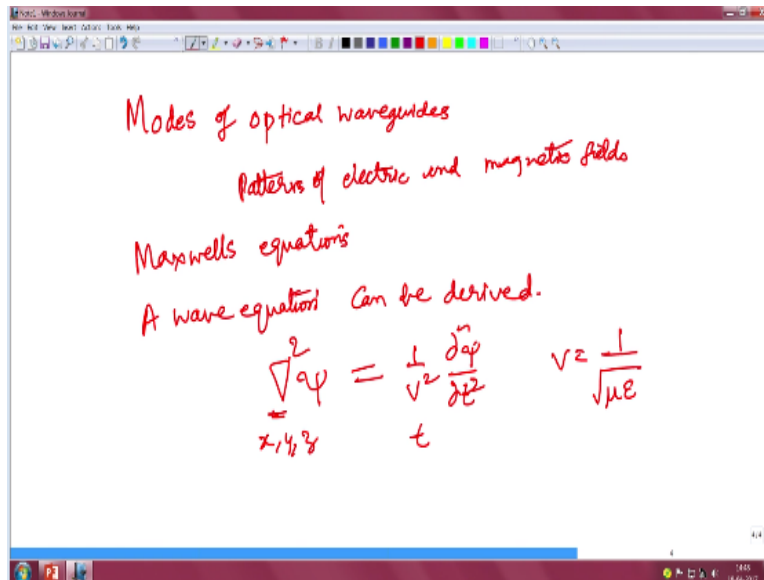 Note1 - Windows Journal
File Edit View Insert Actions Tools Help
Modes of optical waveguides
Patterns of electric and magnetic fields
Maxwells equations
A wave equation can be derived.
∇²ψ = 1/v² ∂²ψ/∂t² v = 1/√με
x, y, z t
4/4
4